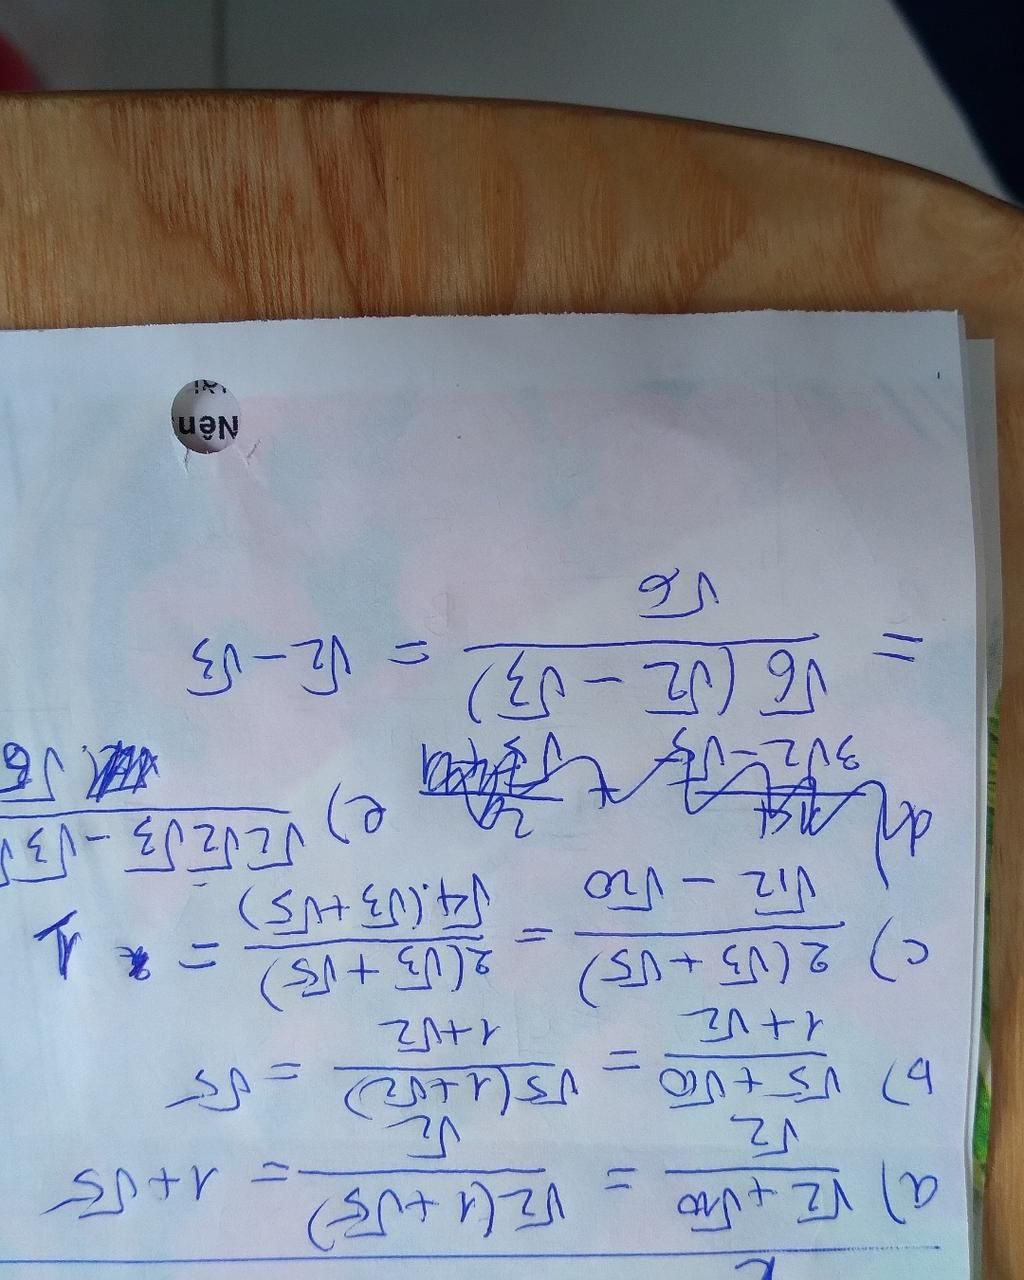 a) (√2 + √10)/√2 = √2(1 + √5)/√2 = 1 + √5
b) (√5 + √10)/(1 + √2) = √5(1 + √2)/(1 + √2) = √5
c) 2(√3 + √5)/(√12 - √20) = 2(√3 + √5)/(√4.(√3 + √5)) = 1
d) 3√2 - √3
e) (√2√2√3 - √3√)/√6
= √6(√2 - √3)/√6 = √2 - √3
Nên